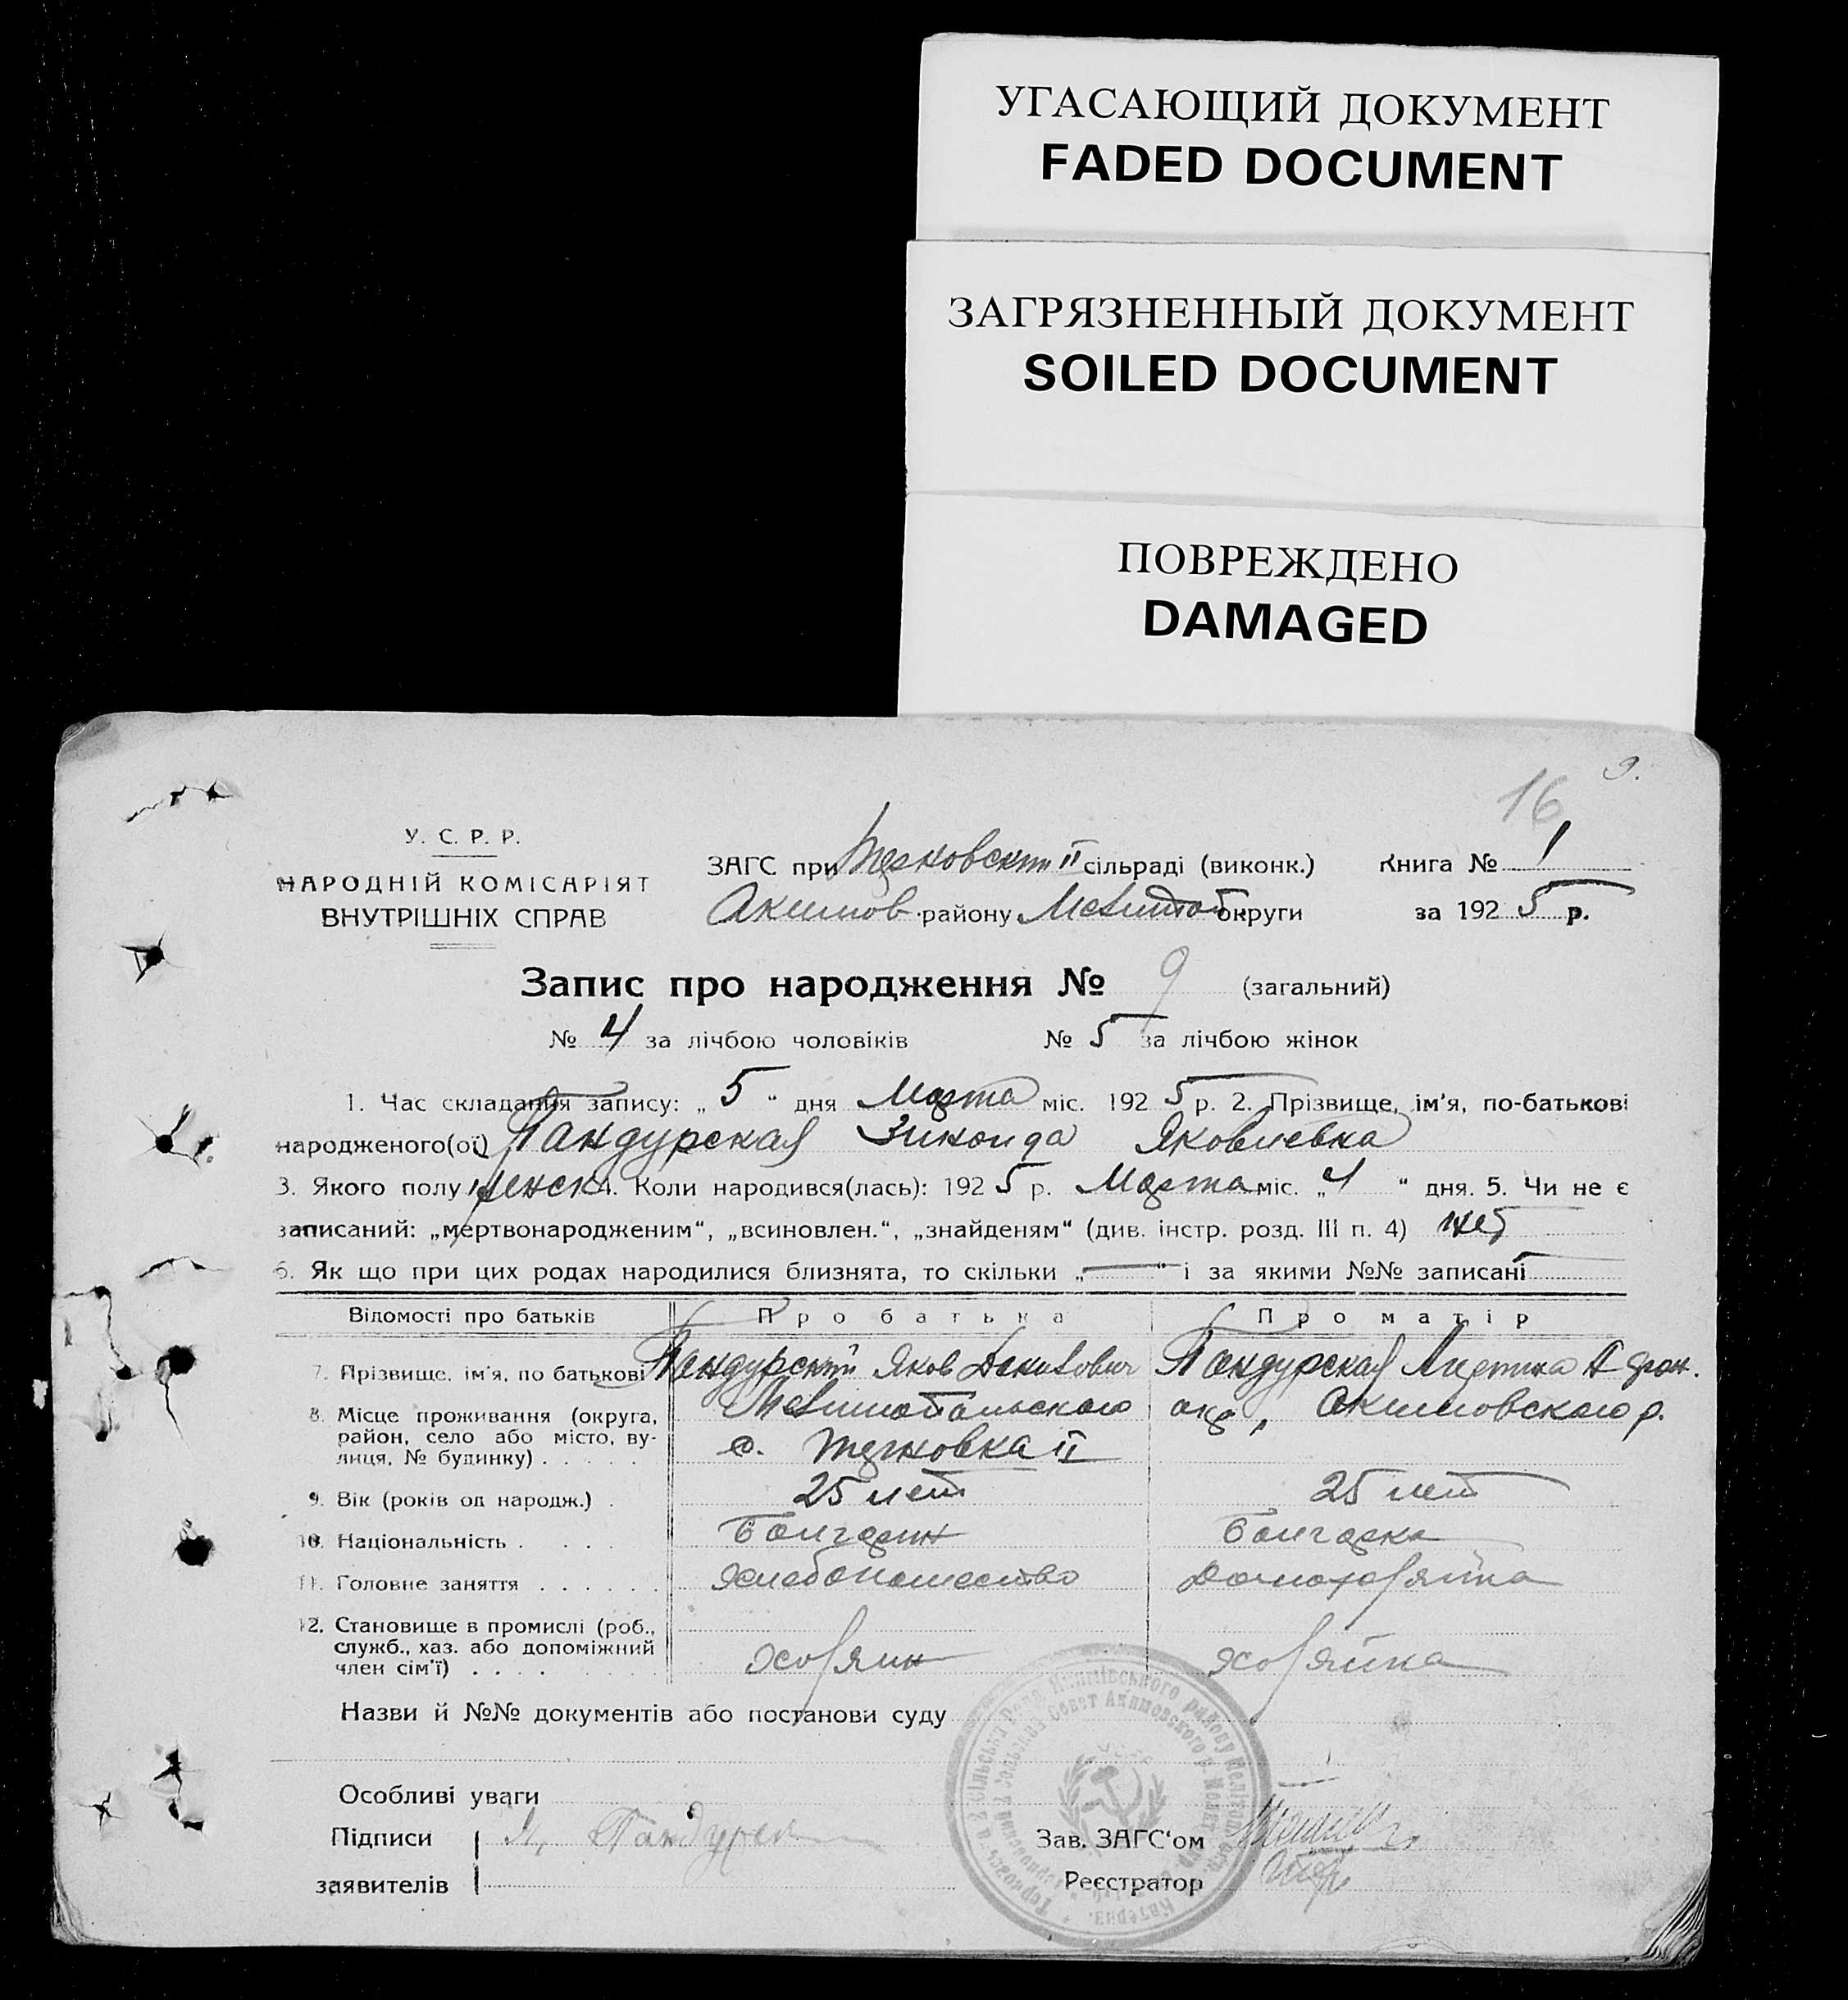 УГАСАЮЩИЙ ДОКУМЕНТ
FADED DOCUMENT
ЗАГРЯЗНЕННЫЙ ДОКУМЕНТ
SOILED DOCUMENT
ПОВРЕЖДЕНО
DAMAGED
9.
16
У. С. Р. Р.
НАРОДНІЙ КОМІСАРІЯТ
ВНУТРІШНІХ СПРАВ
ЗАГС при II сільраді (виконк.) Книга № 1
Акимов. району Мелитоп. округи за 1925 р.
Запис про народження № 9 (загальний)
№ 4 за лічбою чоловіків № 5 за лічбою жінок
1. Час складання запису: „5“ дня Марта міс. 1925 р. 2. Прізвище, ім'я, по-батькові
народженого(ої) Пандурская Зинаида Яковлевна
3. Якого полу женск. 4. Коли народився(лась): 1925 р. Марта міс. „4“ дня. 5. Чи не є
записаний: „мертвонародженим“, „всиновлен.“, „знайденям“ (див. інстр. розд. III п. 4) нет
6. Як що при цих родах народилися близнята, то скільки „—“ і за якими №№ записані
Відомості про батьків Про батька Про матір
7. Прізвище, ім'я, по батькові Пандурский Яков Пандурская
8. Місце проживання (округа, район, село або місто, вулиця, № будинку) Мелитопольского окр., Акимовского р.
с. Терновка II
9. Вік (років од народж.) 25 лет 25 лет
10. Національність Болгарин Болгарка
11. Головне заняття Хлебопашество Домохозяйка
12. Становище в промислі (роб., служб., хаз. або допоміжний член сім'ї) хозяин хозяйка
Назви й №№ документів або постанови суду
Особливі уваги
Підписи заявителів Я. Пандурск
Зав. ЗАГС'ом
Реєстратор